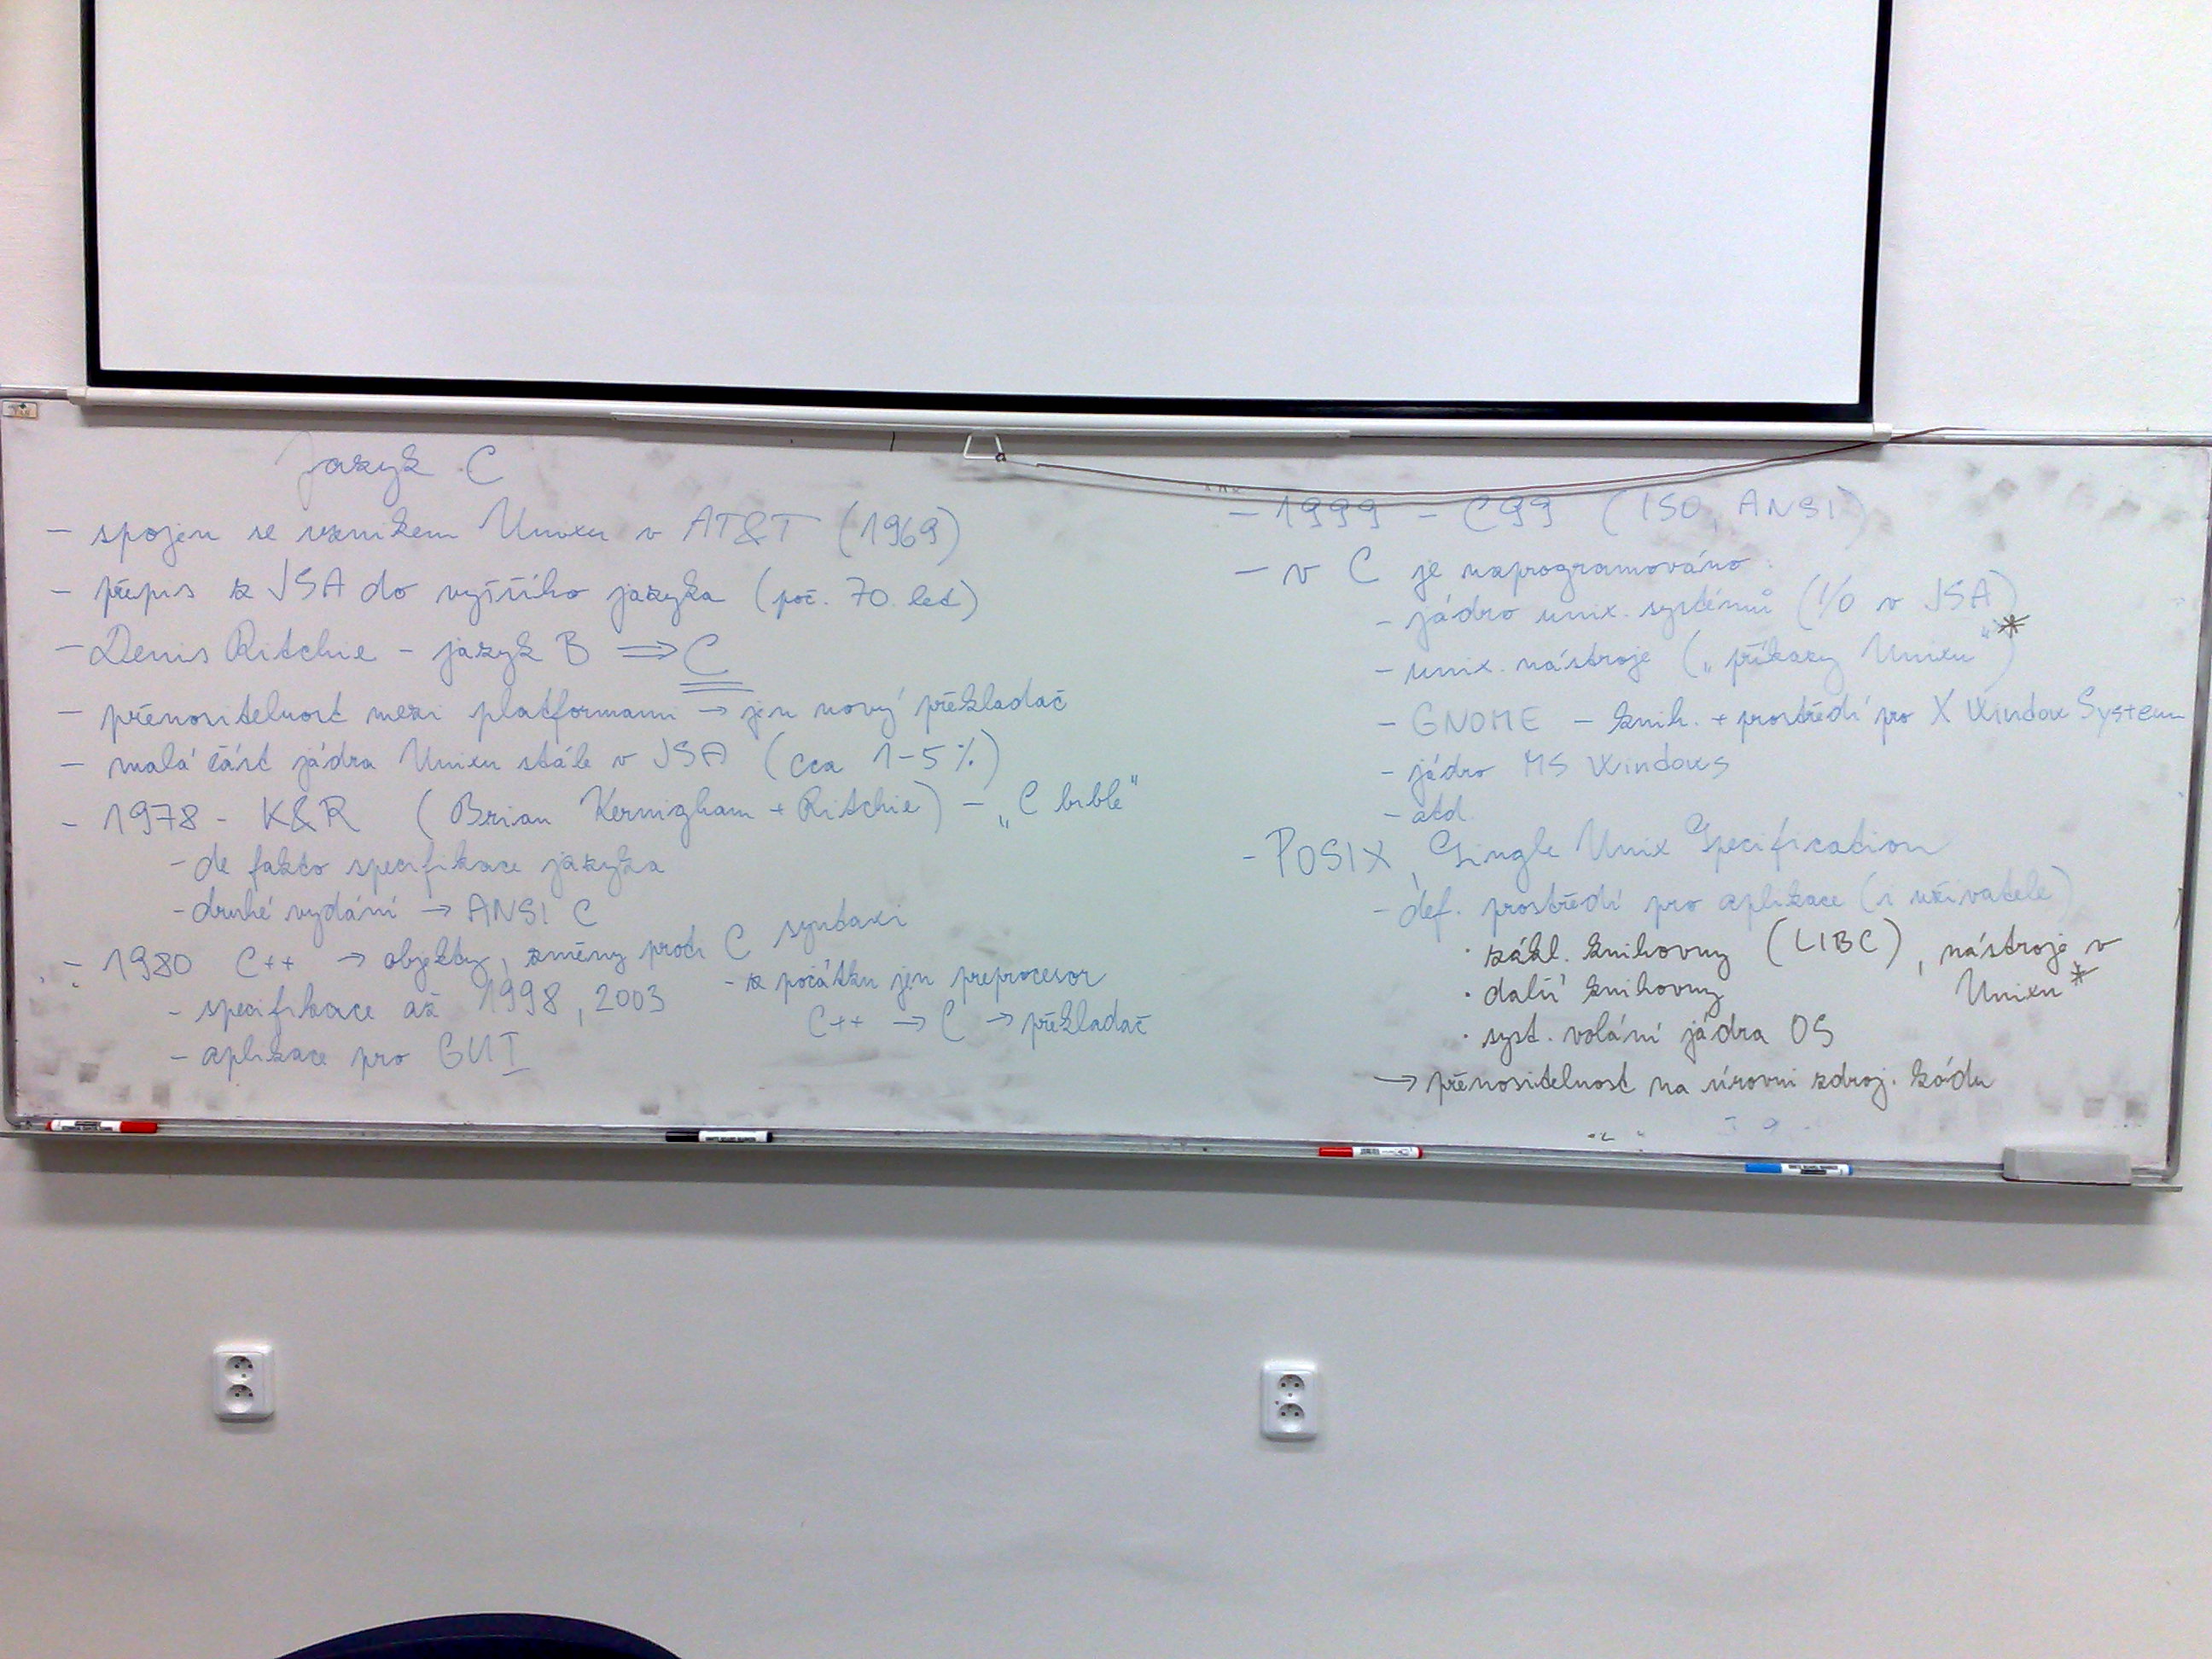 Jazyk C
- spojen se vznikem Unixu v AT&T (1969)
- přepis z JSA do vyššího jazyka (poč. 70. let)
- Denis Ritchie - jazyk B ⇒ C
- přenositelnost mezi platformami → jen nový překladač
- malá část jádra Unixu stále v JSA (cca 1-5%)
- 1978 - K&R (Brian Kernigham + Ritchie) - „C bible"
- de fakto specifikace jazyka
- druhé vydání → ANSI C
- 1980 C++ → objekty, změny proti C syntaxi
- specifikace až 1998, 2003
- z počátku jen preprocesor
C++ → C → překladač
- aplikace pro GUI
- 1999 - C99 (ISO, ANSI)
- v C je naprogramováno:
- jádro unix. systémů (I/O v JSA)
- unix. nástroje („příkazy Unixu")*
- GNOME - knih. + prostředí pro X Window System
- jádro MS Windows
- atd.
- POSIX, Single Unix Specification
- def. prostředí pro aplikace (i uživatele)
· zákl. knihovny (LIBC), nástroje v Unixu*
· další knihovny
· syst. volání jádra OS
→ přenositelnost na úrovni zdroj. kódu